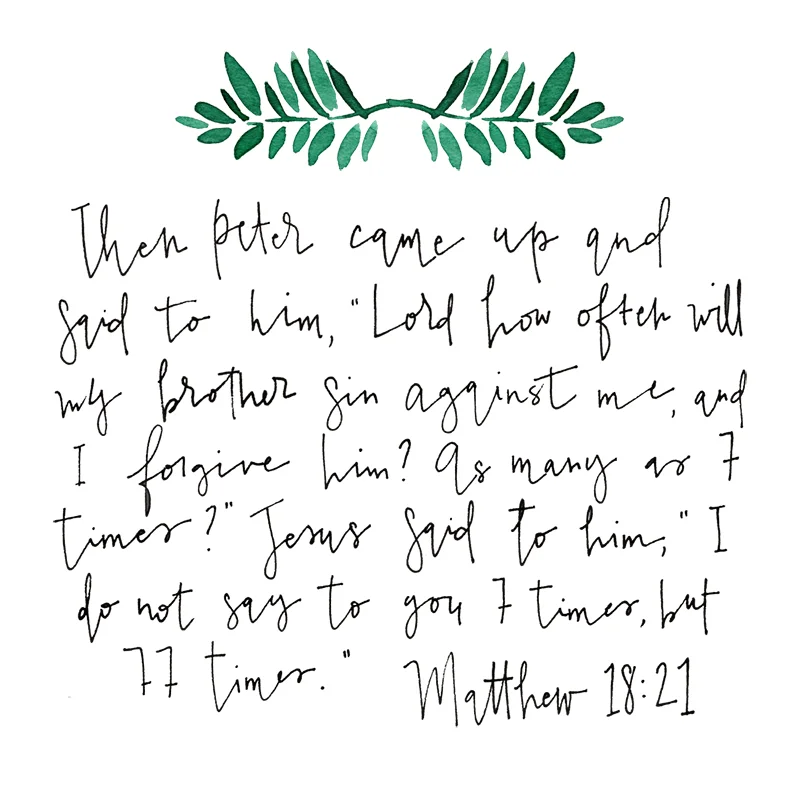 Then Peter came up and
said to him, "Lord how often will
my brother sin against me, and
I forgive him? As many as 7
times?" Jesus said to him, "I
do not say to you 7 times, but
77 times."  Matthew 18:21